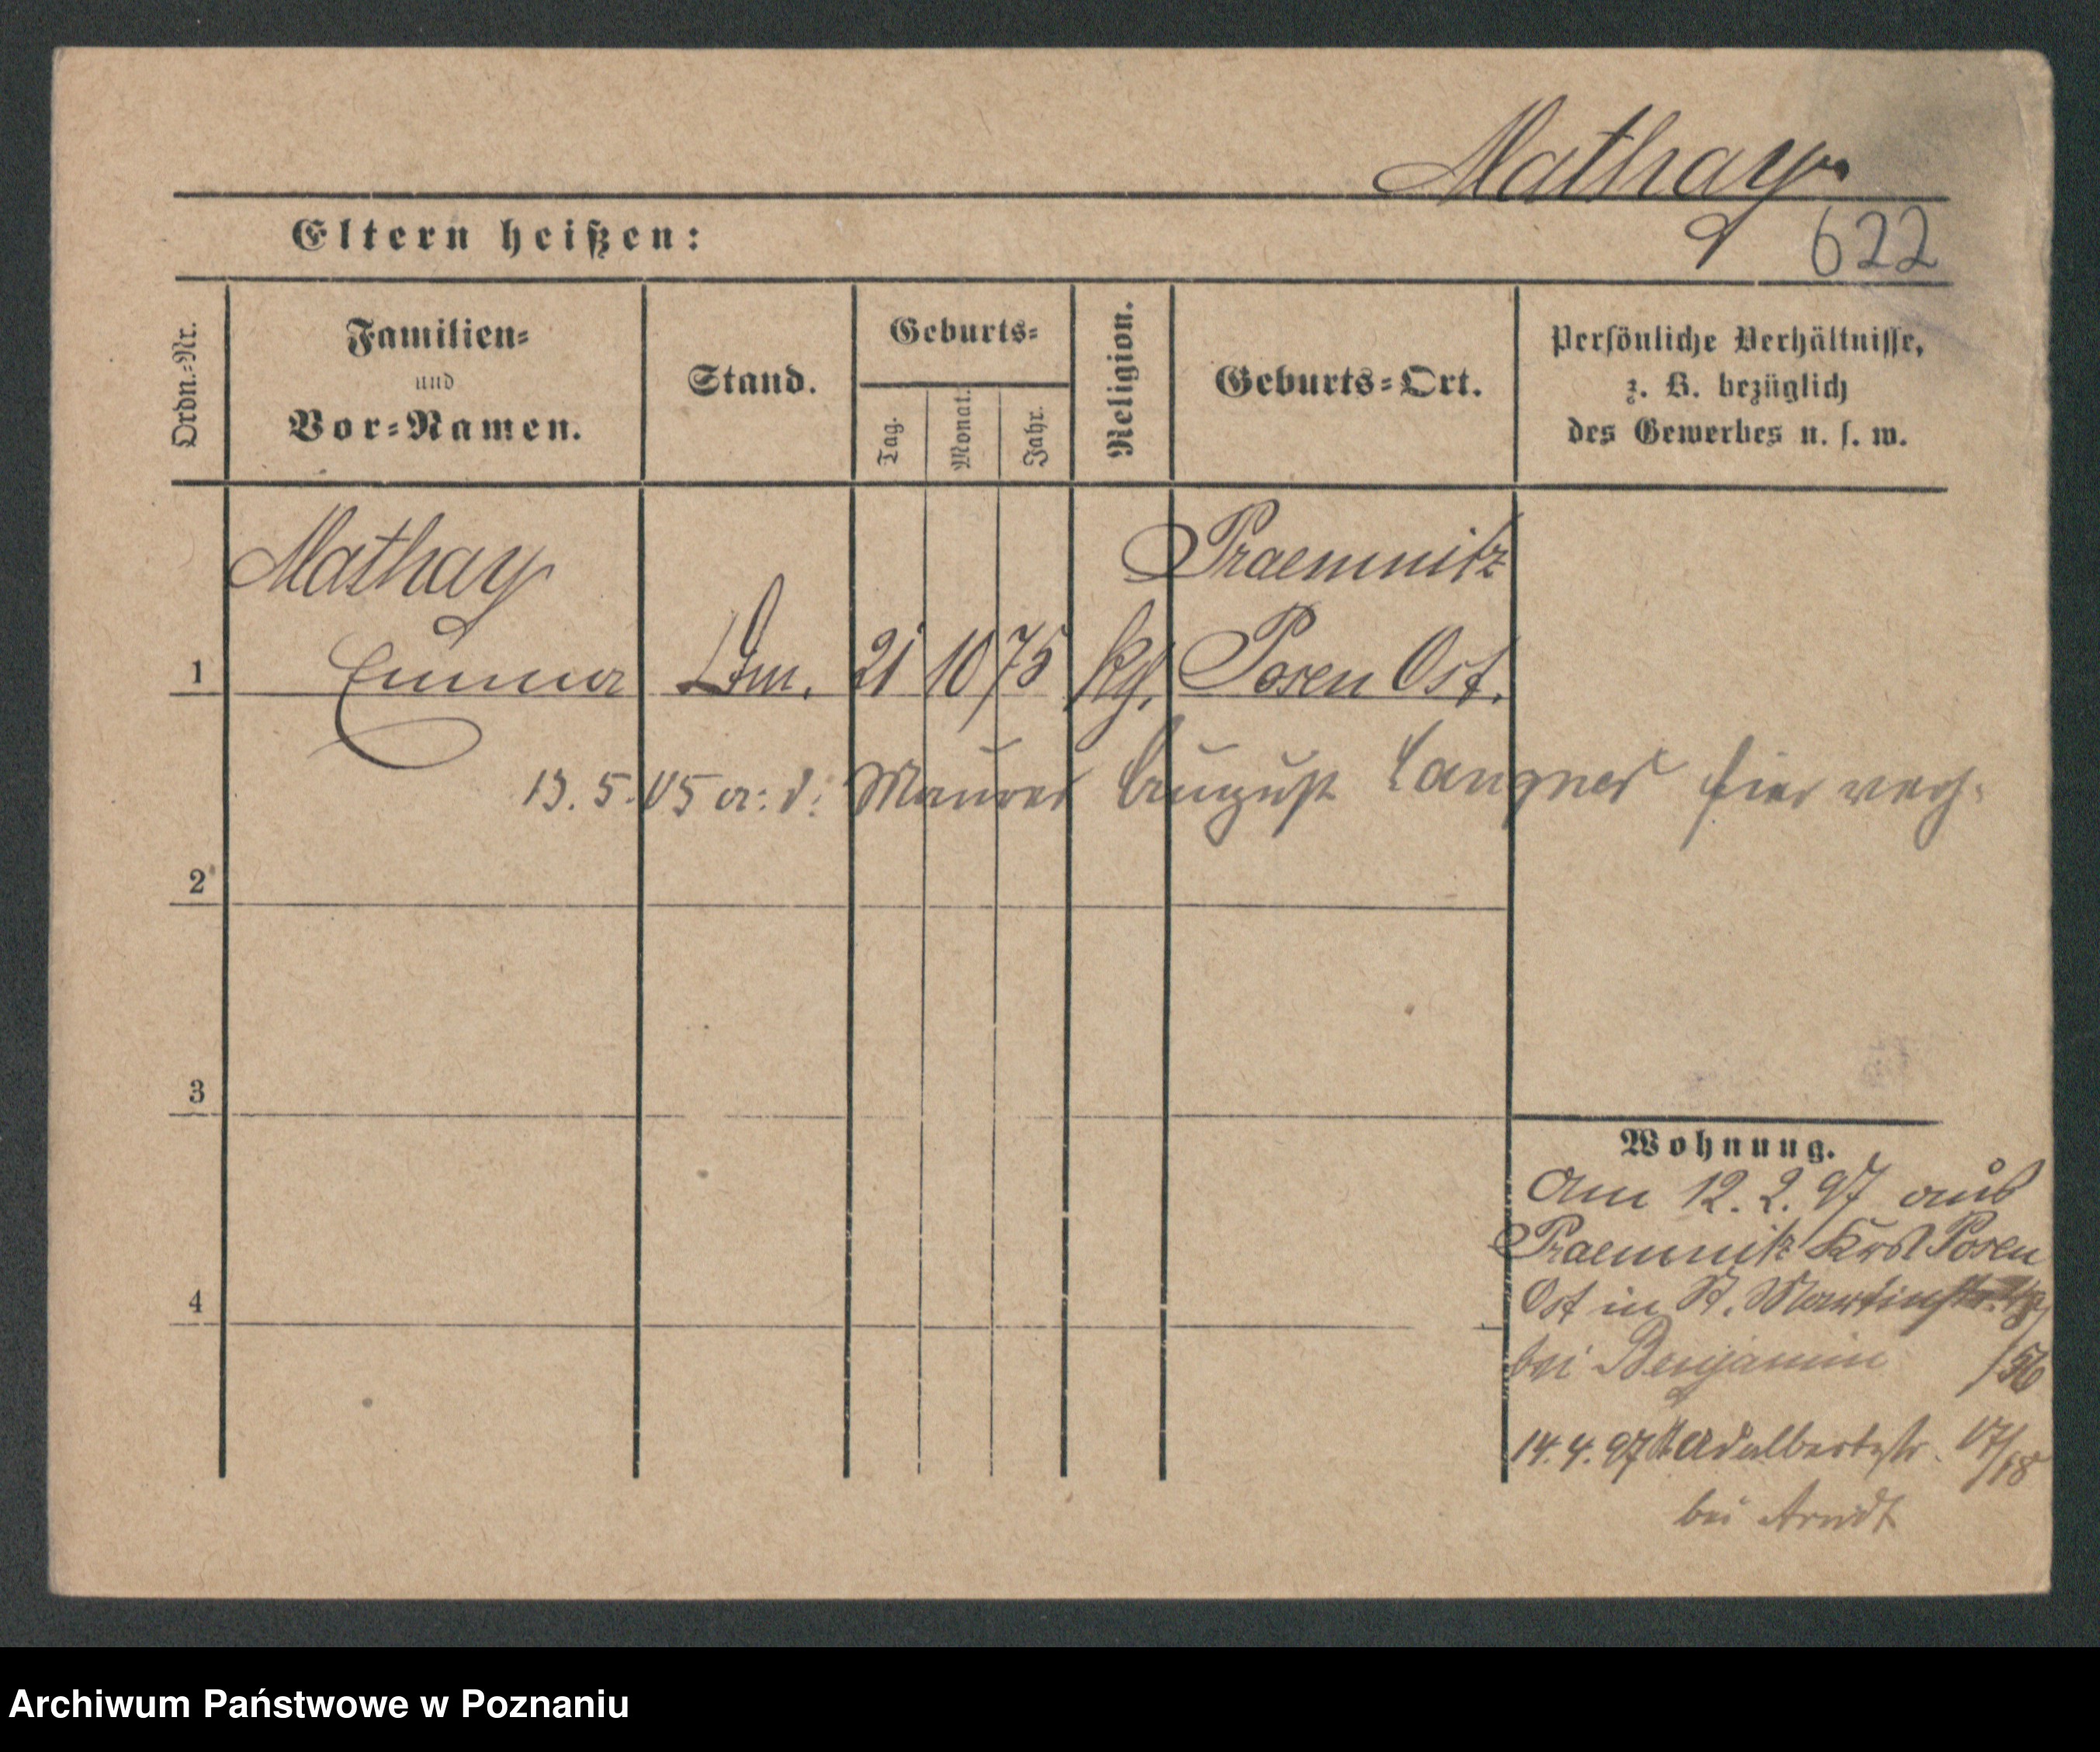 Mathay
622
Eltern heißen:
Ordn.-Nr.
Familien-
und
Vor-Namen.
Stand.
Geburts-
Tag.
Monat.
Jahr.
Religion.
Geburts-Ort.
Persönliche Verhältnisse,
z. B. bezüglich
des Gewerbes u. s. w.
Mathay
Praemnitz
1 Emma 21 10 75 Posen Ost.
13. 5. 05 Maurer August Langner hier
2
3
4
Wohnung.
Am 12. 2. 97 aus
Praemnitz Posen
Ost in St. Martinstr.
bei Benjamin /56
14. 4. 97 St Adalbertstr. 17/18
bei Arndt
Archiwum Państwowe w Poznaniu